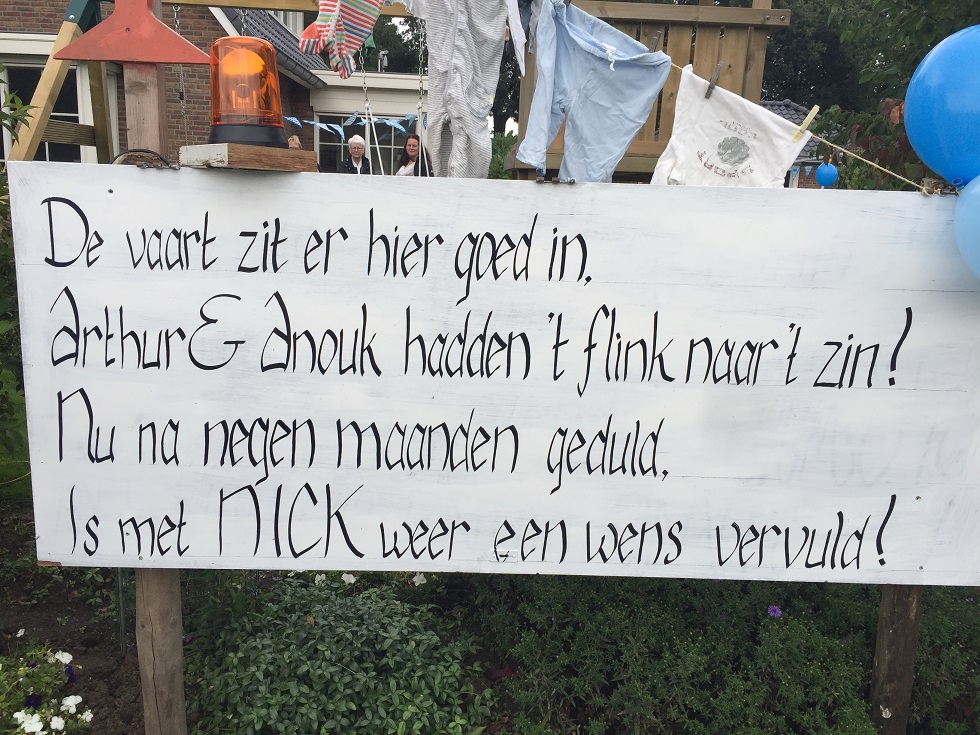 De vaart zit er hier goed in,
Arthur & Anouk hadden 't flink naar 't zin!
Nu na negen maanden geduld,
Is met NICK weer een wens vervuld!